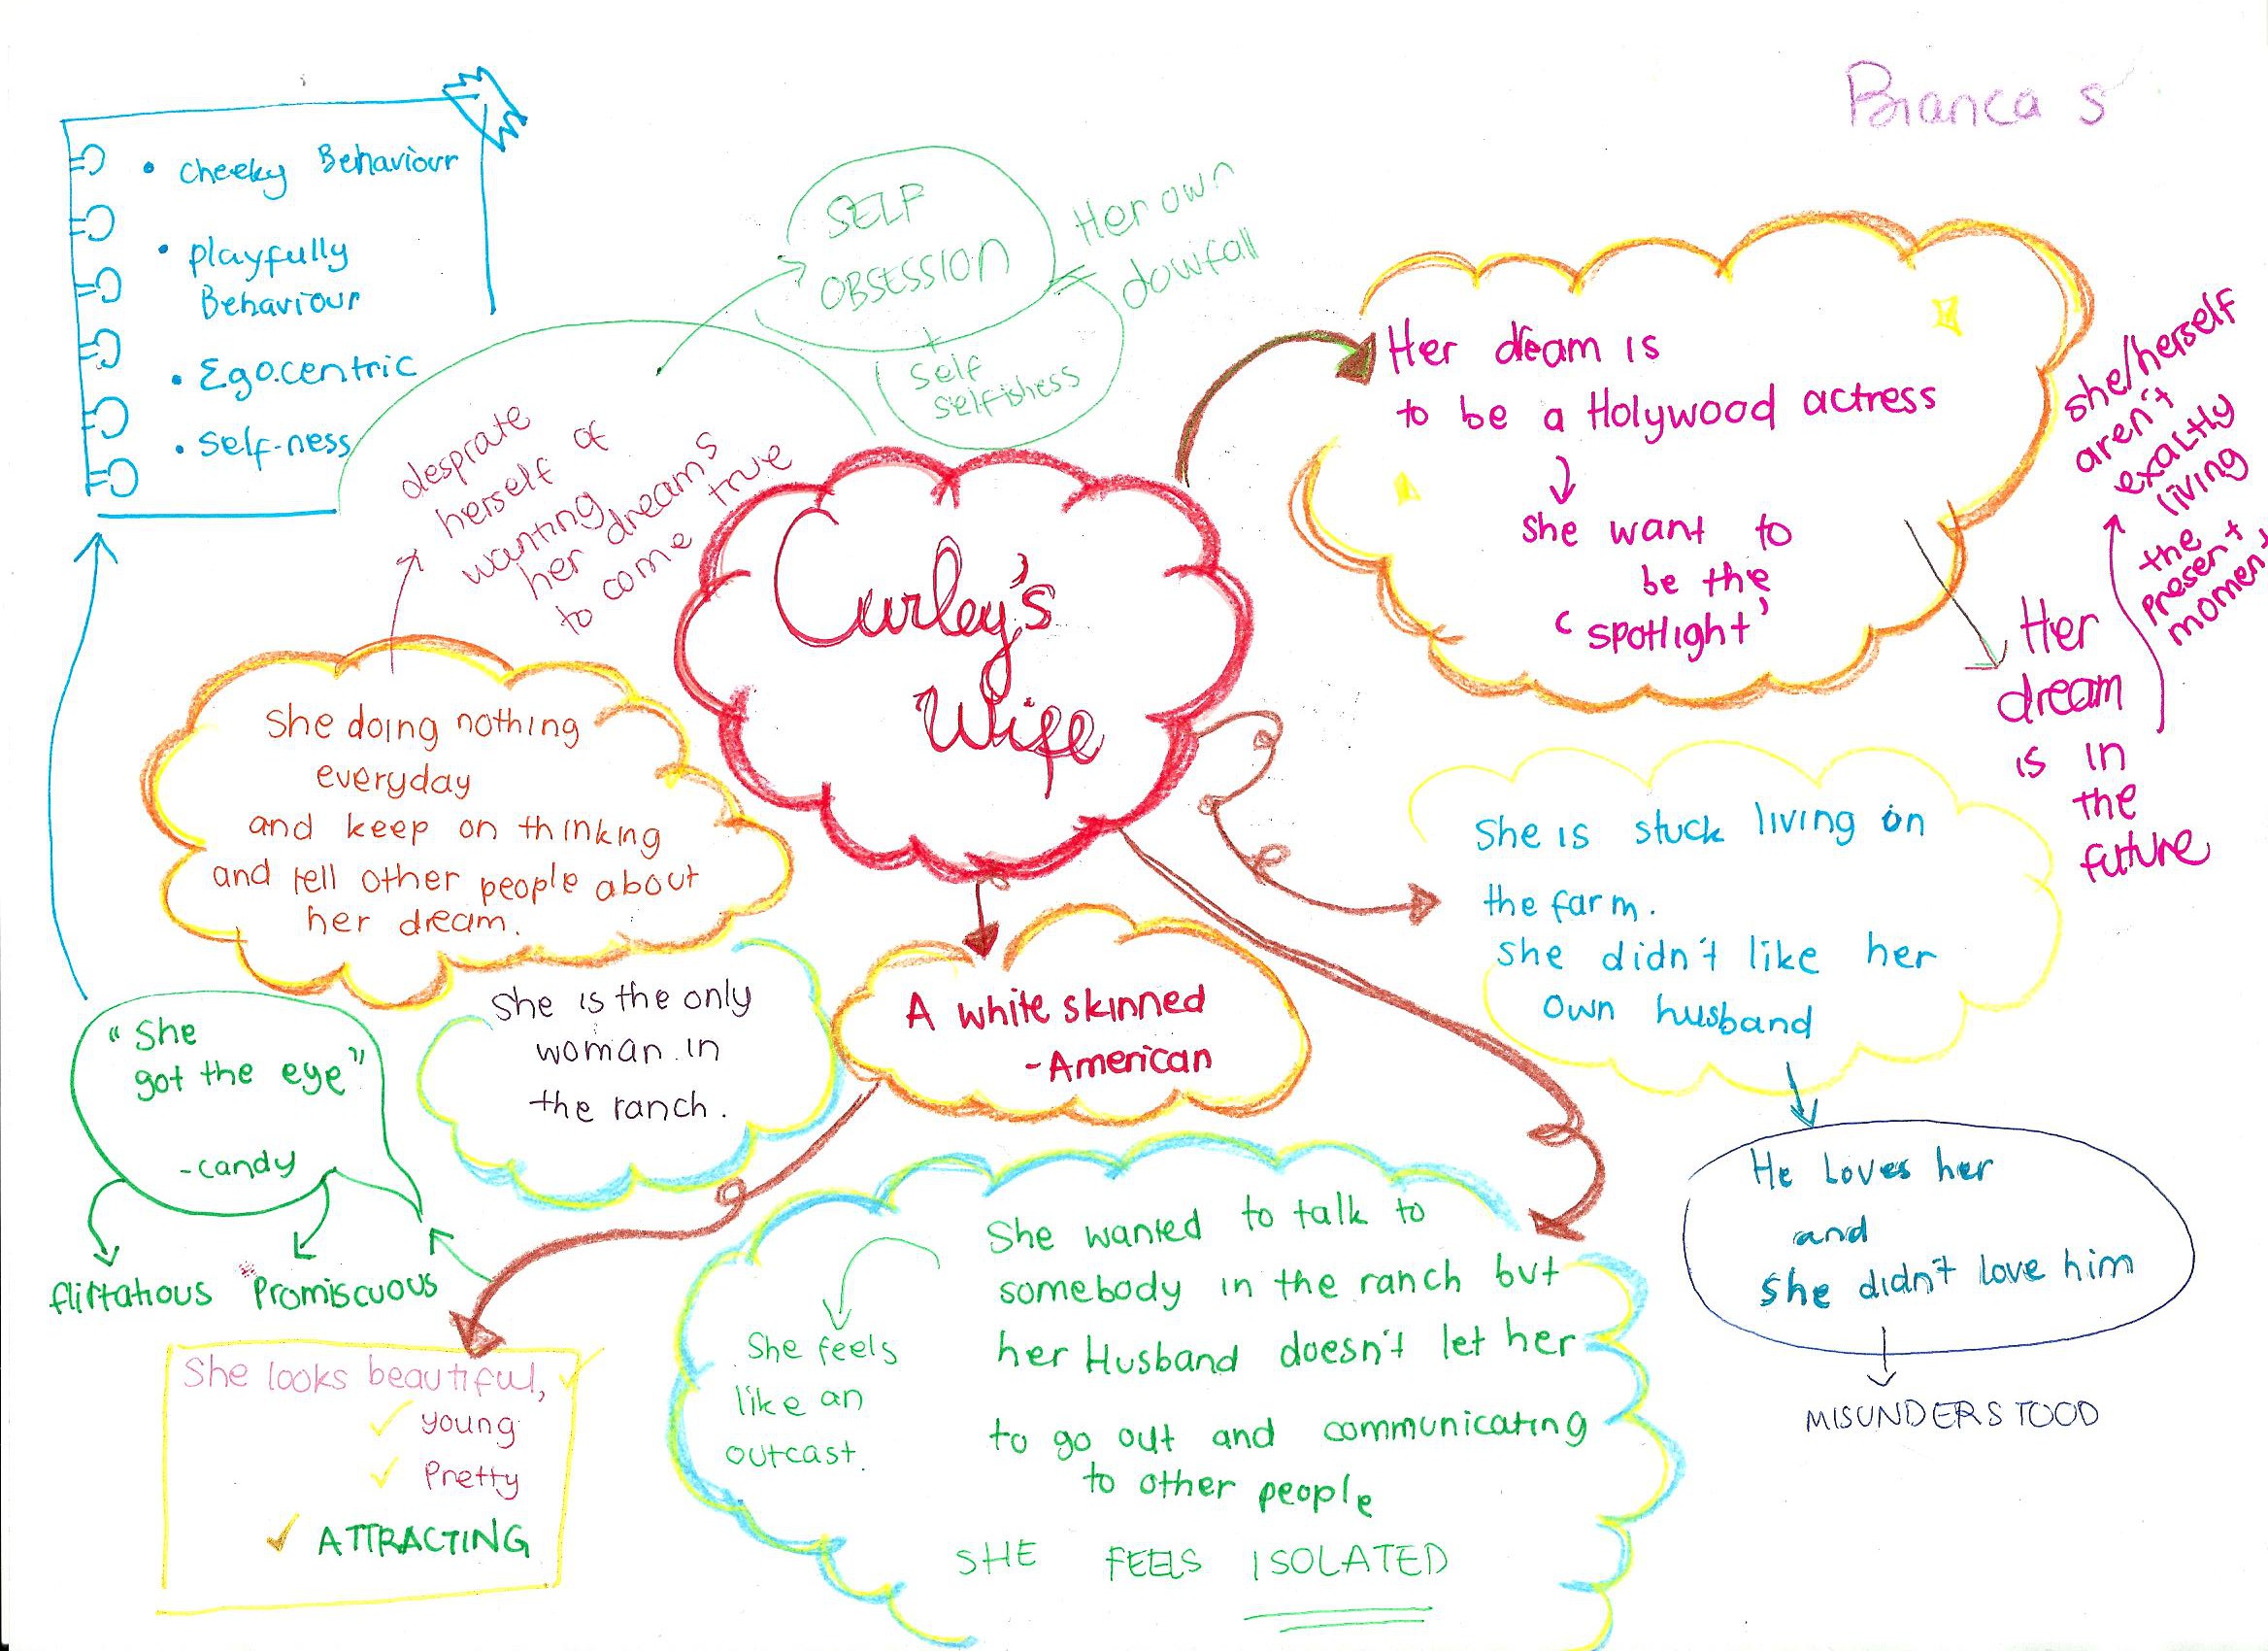 Bianca S
• cheeky Behaviour
• playfully
Behaviour
• Egocentric
• Self-ness
SELF
OBSESSION
+
Self
selfishess
Her own
dowfall
desprate
herself of
wanting
her dreams
to come true
Curley's
Wife
Her dream is
to be a Holywood actress
she want to
be the
'spotlight'
Her
dream
is in
the
future
she/herself
aren't
exaltly
living
the
present
moment
She doing nothing
everyday
and keep on thinking
and tell other people about
her dream.
She is stuck living on
the farm.
She didn't like her
own husband
He Loves her
and
She didn't love him
MISUNDERSTOOD
She is the only
woman in
the ranch.
A white skinned
-American
"She
got the eye"
-candy
flirtatious
Promiscuous
She looks beautiful,
✓ young
✓ Pretty
✓ ATTRACTING
She wanted to talk to
somebody in the ranch but
her Husband doesn't let her
to go out and communicating
to other people
She feels
like an
outcast.
SHE FEELS ISOLATED